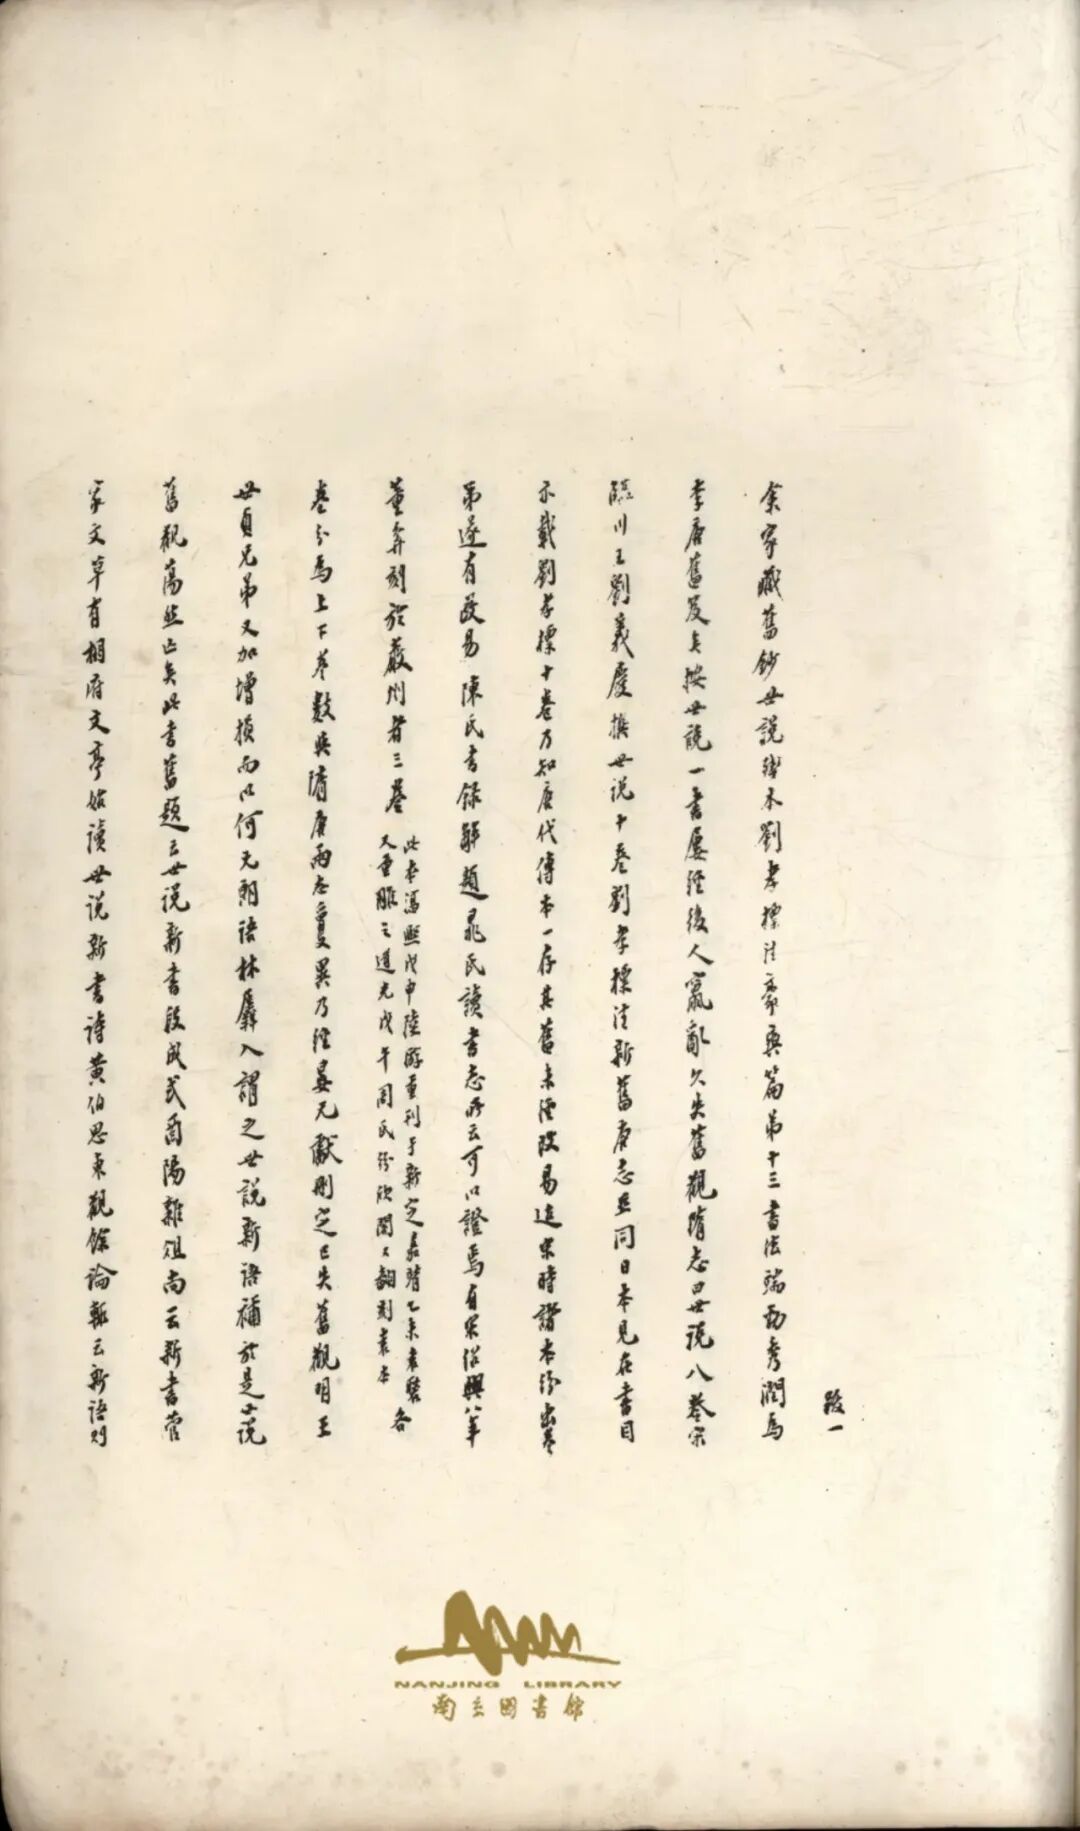 跋一
余家藏舊鈔世說殘本劉孝標注豪爽篇第十三書法端勁秀潤為
李唐舊笈矣按世說一書屢經後人竄亂久失舊觀隋志曰世說八卷宋
臨川王劉義慶撰世說十卷劉孝標注新舊唐志並同日本見在書目
亦載劉孝標十卷乃知唐代傳本一存其舊未經改易迨宋時諸本紛出卷
第遂有改易陳氏書錄解題晁氏讀書志所云可以證焉有宋紹興八年
董弅刻於嚴州者三卷
此本淳熙戊申陸游重刊于新定嘉靖乙未袁褧
又重雕之道光戊午周氏紛欣閣又翻刻袁本
各
卷分為上下卷數與隋唐兩志敻異乃經晏元獻刪定已失舊觀明王
世貞兄弟又加增損而以何元朗語林羼入謂之世說新語補於是世說
舊觀蕩然亡矣此書舊題云世說新書段成式酉陽雜俎尚云新書菅
家文草有相府文亭始讀世說新書詩黃伯思東觀餘論輒云新語則
NANJING LIBRARY
南京圖書館